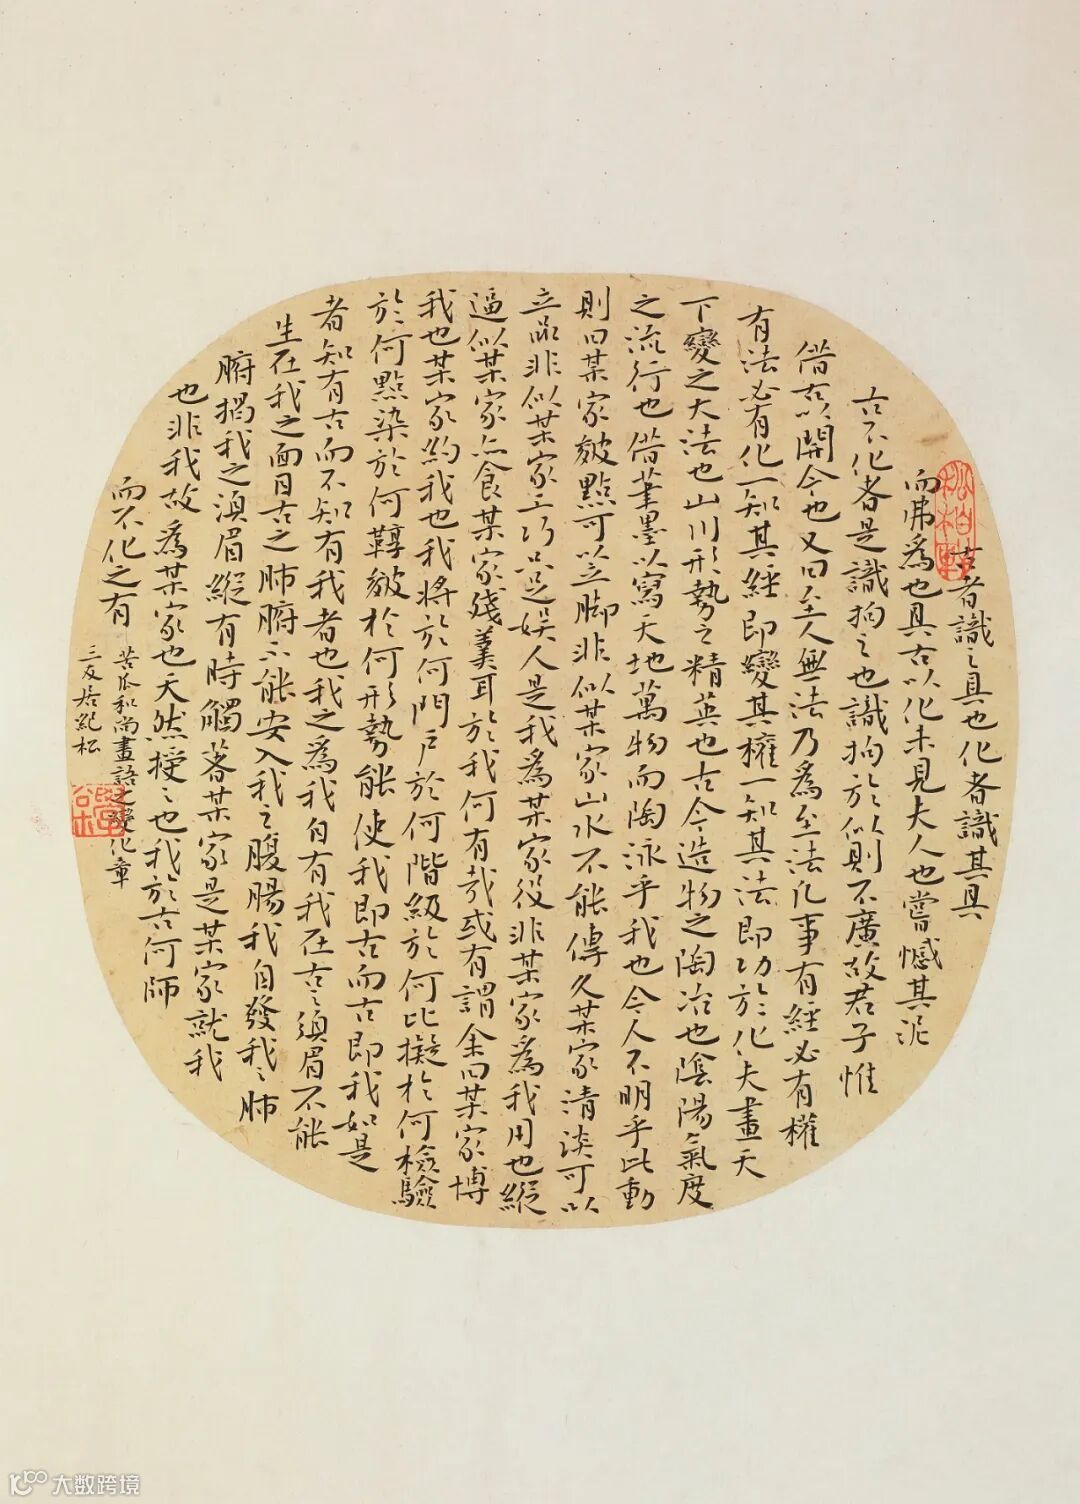 古者識之具也化者識其具
而弗為也具古以化未見夫人也嘗憾其泥
古不化者是識拘之也識拘於似則不廣故君子惟
借古以開今也又曰至人無法乃為至法凡事有經必有權
有法必有化一知其經即變其權一知其法即功於化夫畫天
下變之大法也山川形勢之精英也古今造物之陶冶也陰陽氣度
之流行也借筆墨以寫天地萬物而陶泳乎我也今人不明乎此動
則曰某家皴點可以立脚非似某家山水不能傳久某家清淡可以
立品非似某家工巧只足娛人是我為某家役非某家為我用也縱
逼似某家亦食某家殘羹耳於我何有哉或有謂余曰某家博
我也某家約我也我將於何門戶於何階級於何比擬於何檢驗
於何點染於何鞟皴於何形勢能使我即古而古即我如是
者知有古而不知有我者也我之為我自有我在古之須眉不能
生在我之面目古之肺腑不能安入我之腹腸我自發我之肺
腑揭我之須眉縱有時觸着某家是某家就我
也非我故為某家也天然授之也我於古何師
而不化之有
苦瓜和尚畫語之變化章
三友居紀松
松柏軒
大数跨境